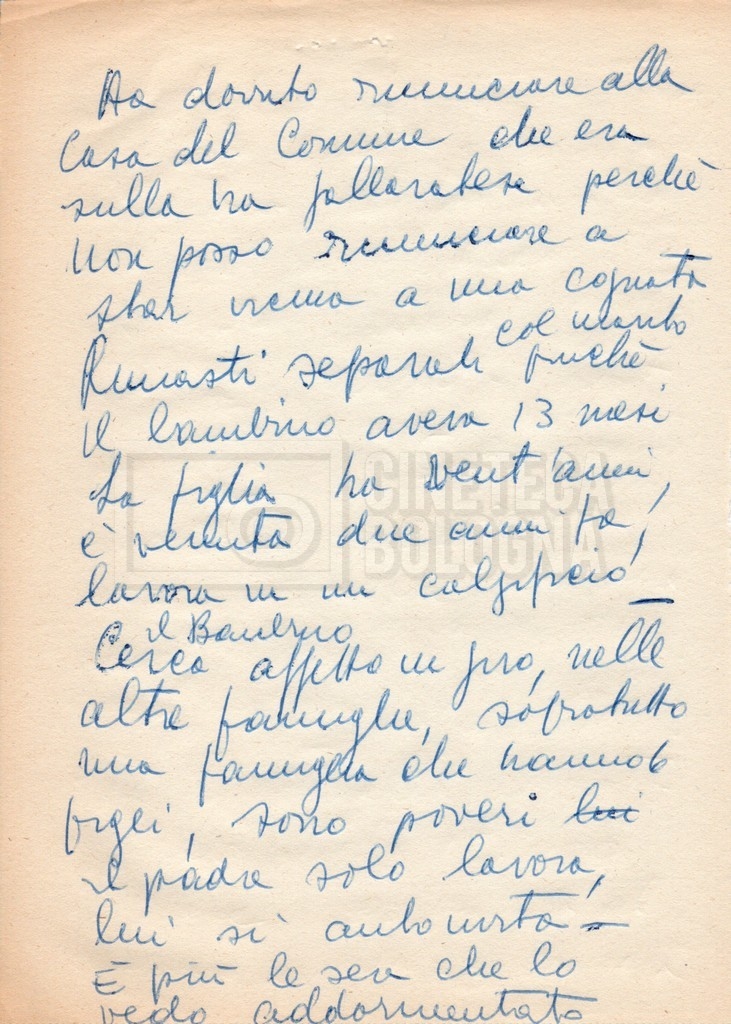 Ha dovuto rinunciare alla
casa del Comune che era
sulla via Gallaratese perchè
non posso rinunciare a
star vicina a una cognata
col marito
Rimasti separati finchè
il bambino aveva 13 mesi
La figlia ha vent'anni,
è venuta due anni fa,
lavora in un calzificio –
il Bambino
Cerca affetto in giro, nelle
altre famiglie, sopratutto
una famiglia che hanno 6
figli, sono poveri lui
il padre solo lavora,
lui si autoinvita –
È più le sere che lo
vedo addormentato
CINETECA
BOLOGNA